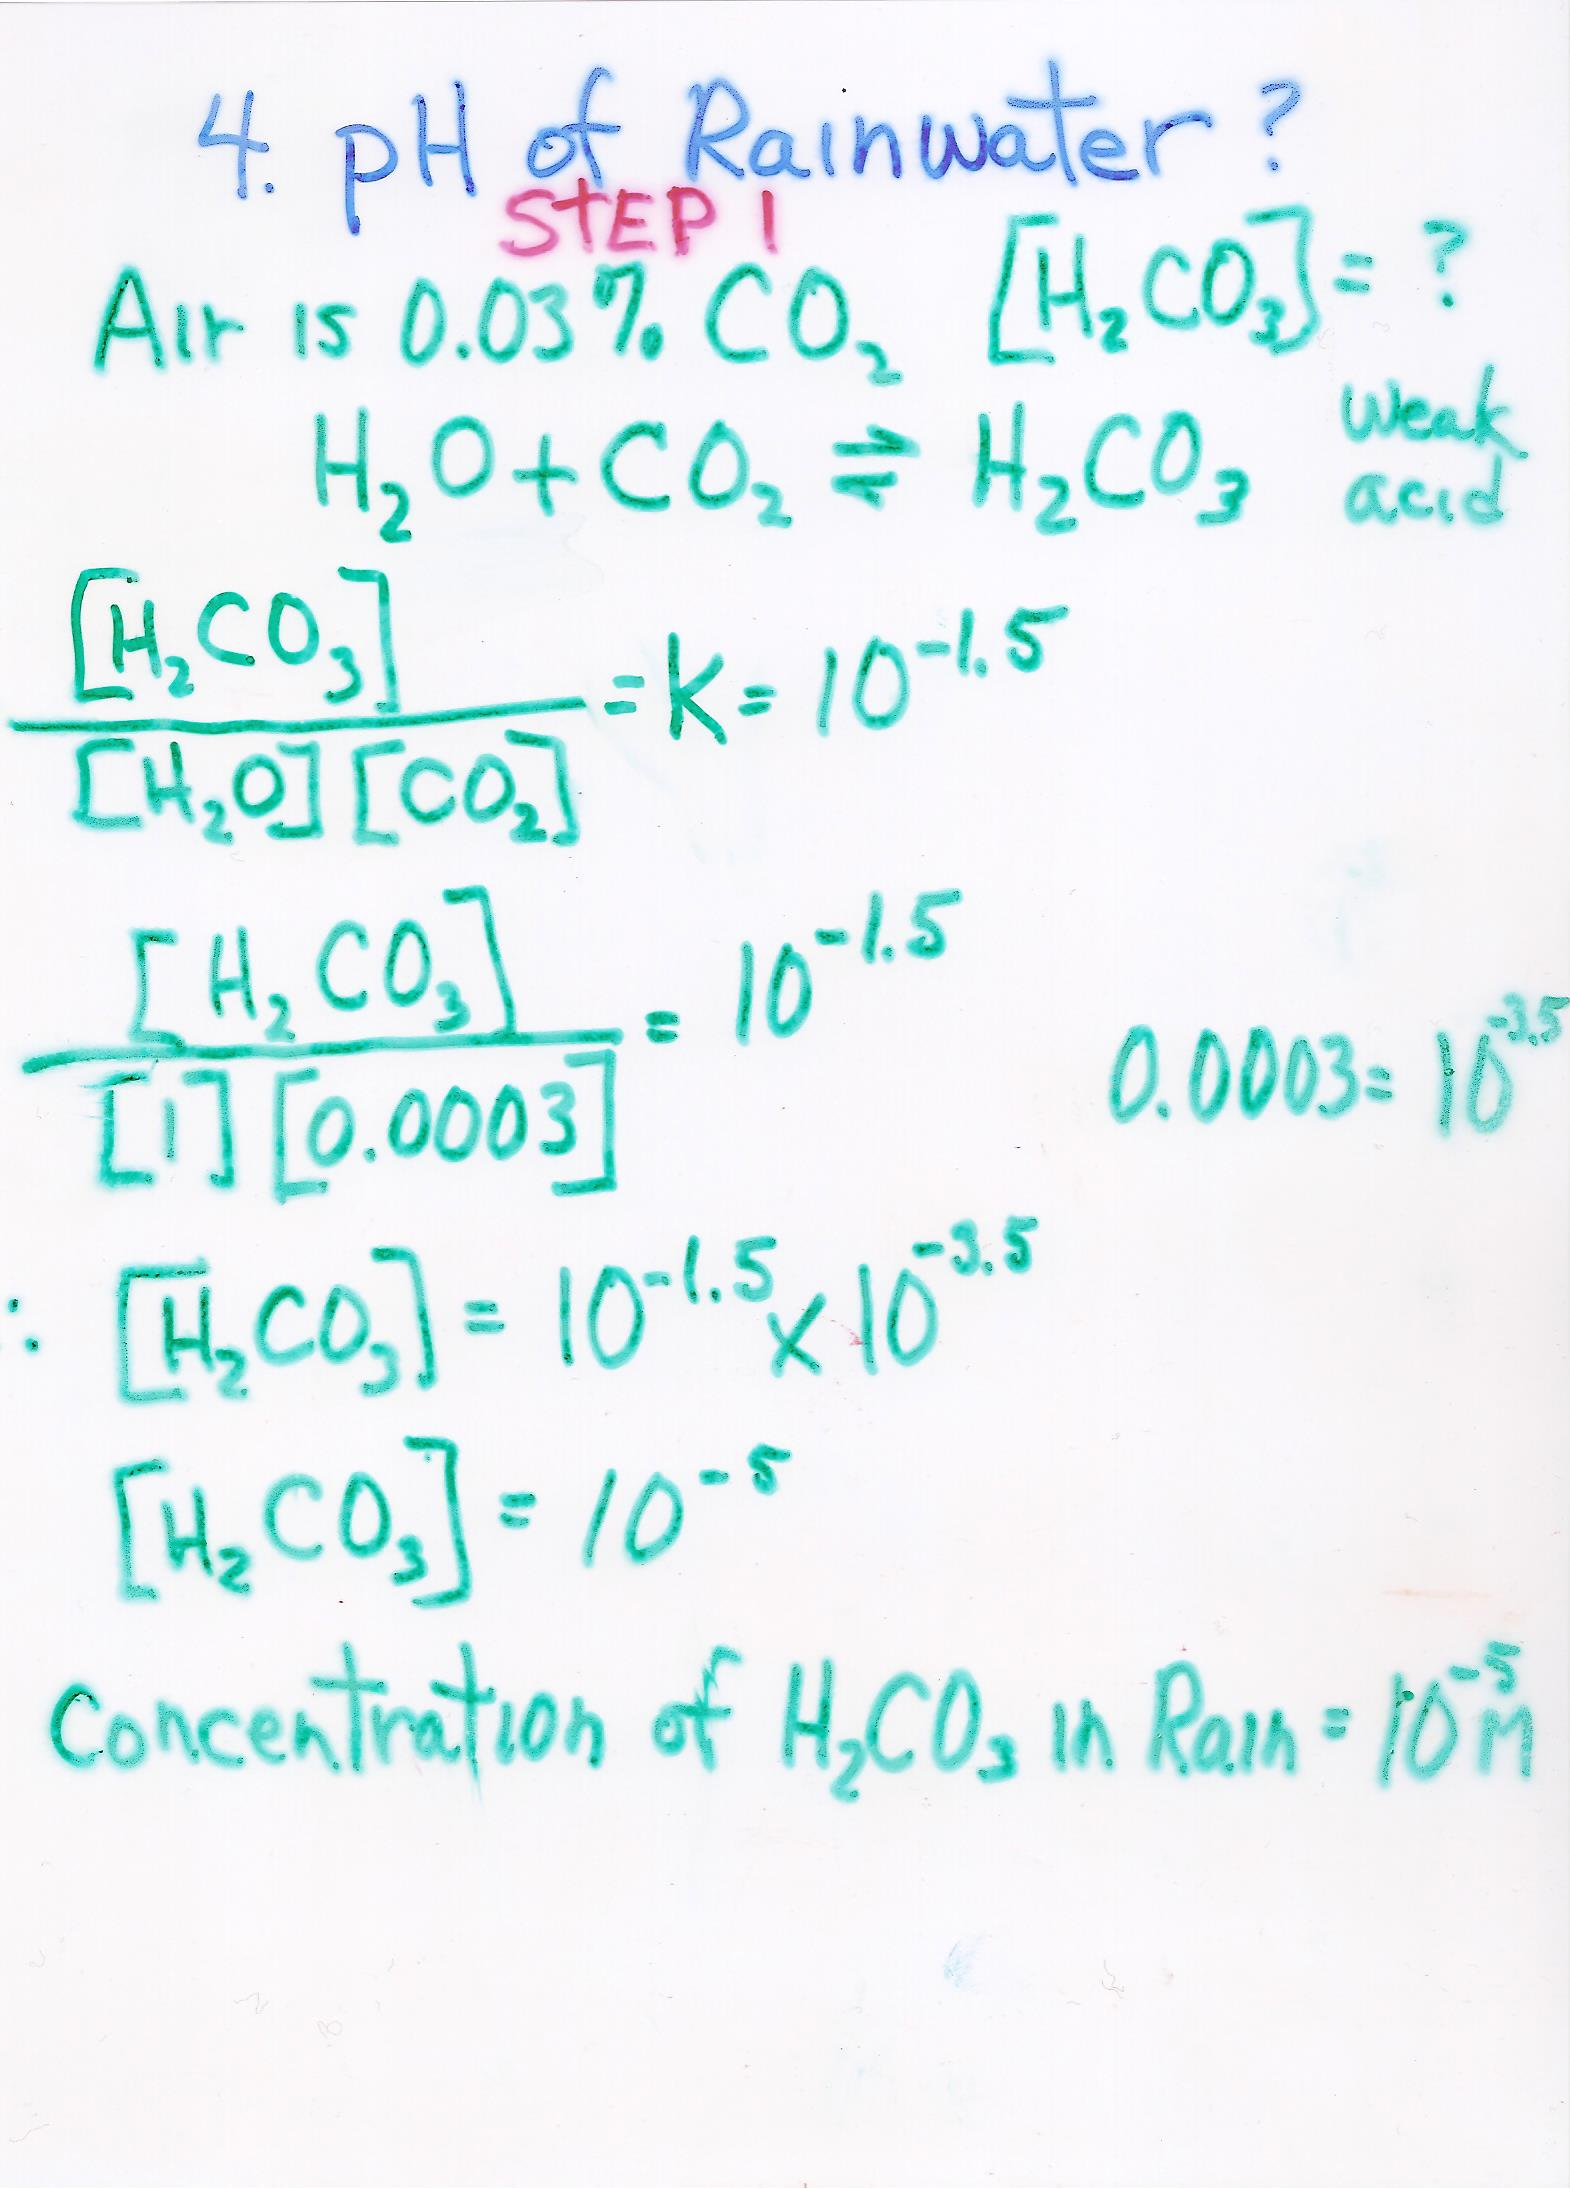 4. pH of Rainwater?
STEP 1
Air is 0.03% CO₂ [H₂CO₃] = ?
H₂O + CO₂ ⇌ H₂CO₃ weak acid
[H₂CO₃]
/ [H₂O] [CO₂] = K = 10⁻¹·⁵
[H₂CO₃]
/ [1] [0.0003] = 10⁻¹·⁵
0.0003 = 10⁻³·⁵
∴ [H₂CO₃] = 10⁻¹·⁵ x 10⁻³·⁵
[H₂CO₃] = 10⁻⁵
Concentration of H₂CO₃ in Rain = 10⁻⁵ M